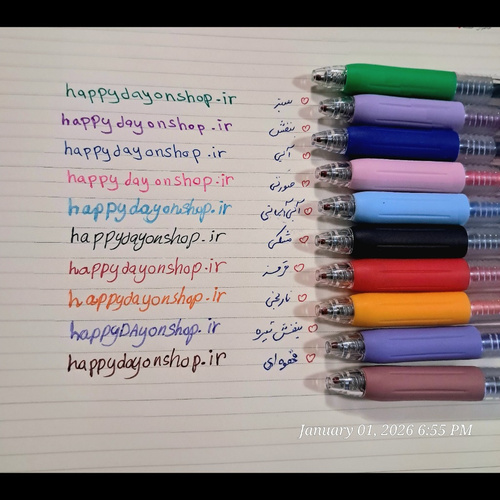 happydayonshop.ir سبز
happydayonshop.ir بنفش
happydayonshop.ir آبی
happydayonshop.ir صورتی
happydayonshop.ir آبی آسمانی
happydayonshop.ir مشکی
happydayonshop.ir قرمز
happydayonshop.ir نارنجی
happyDAyonshop.ir بنفش تیره
happydayonshop.ir قهوه‌ای
January 01, 2026 6:55 PM